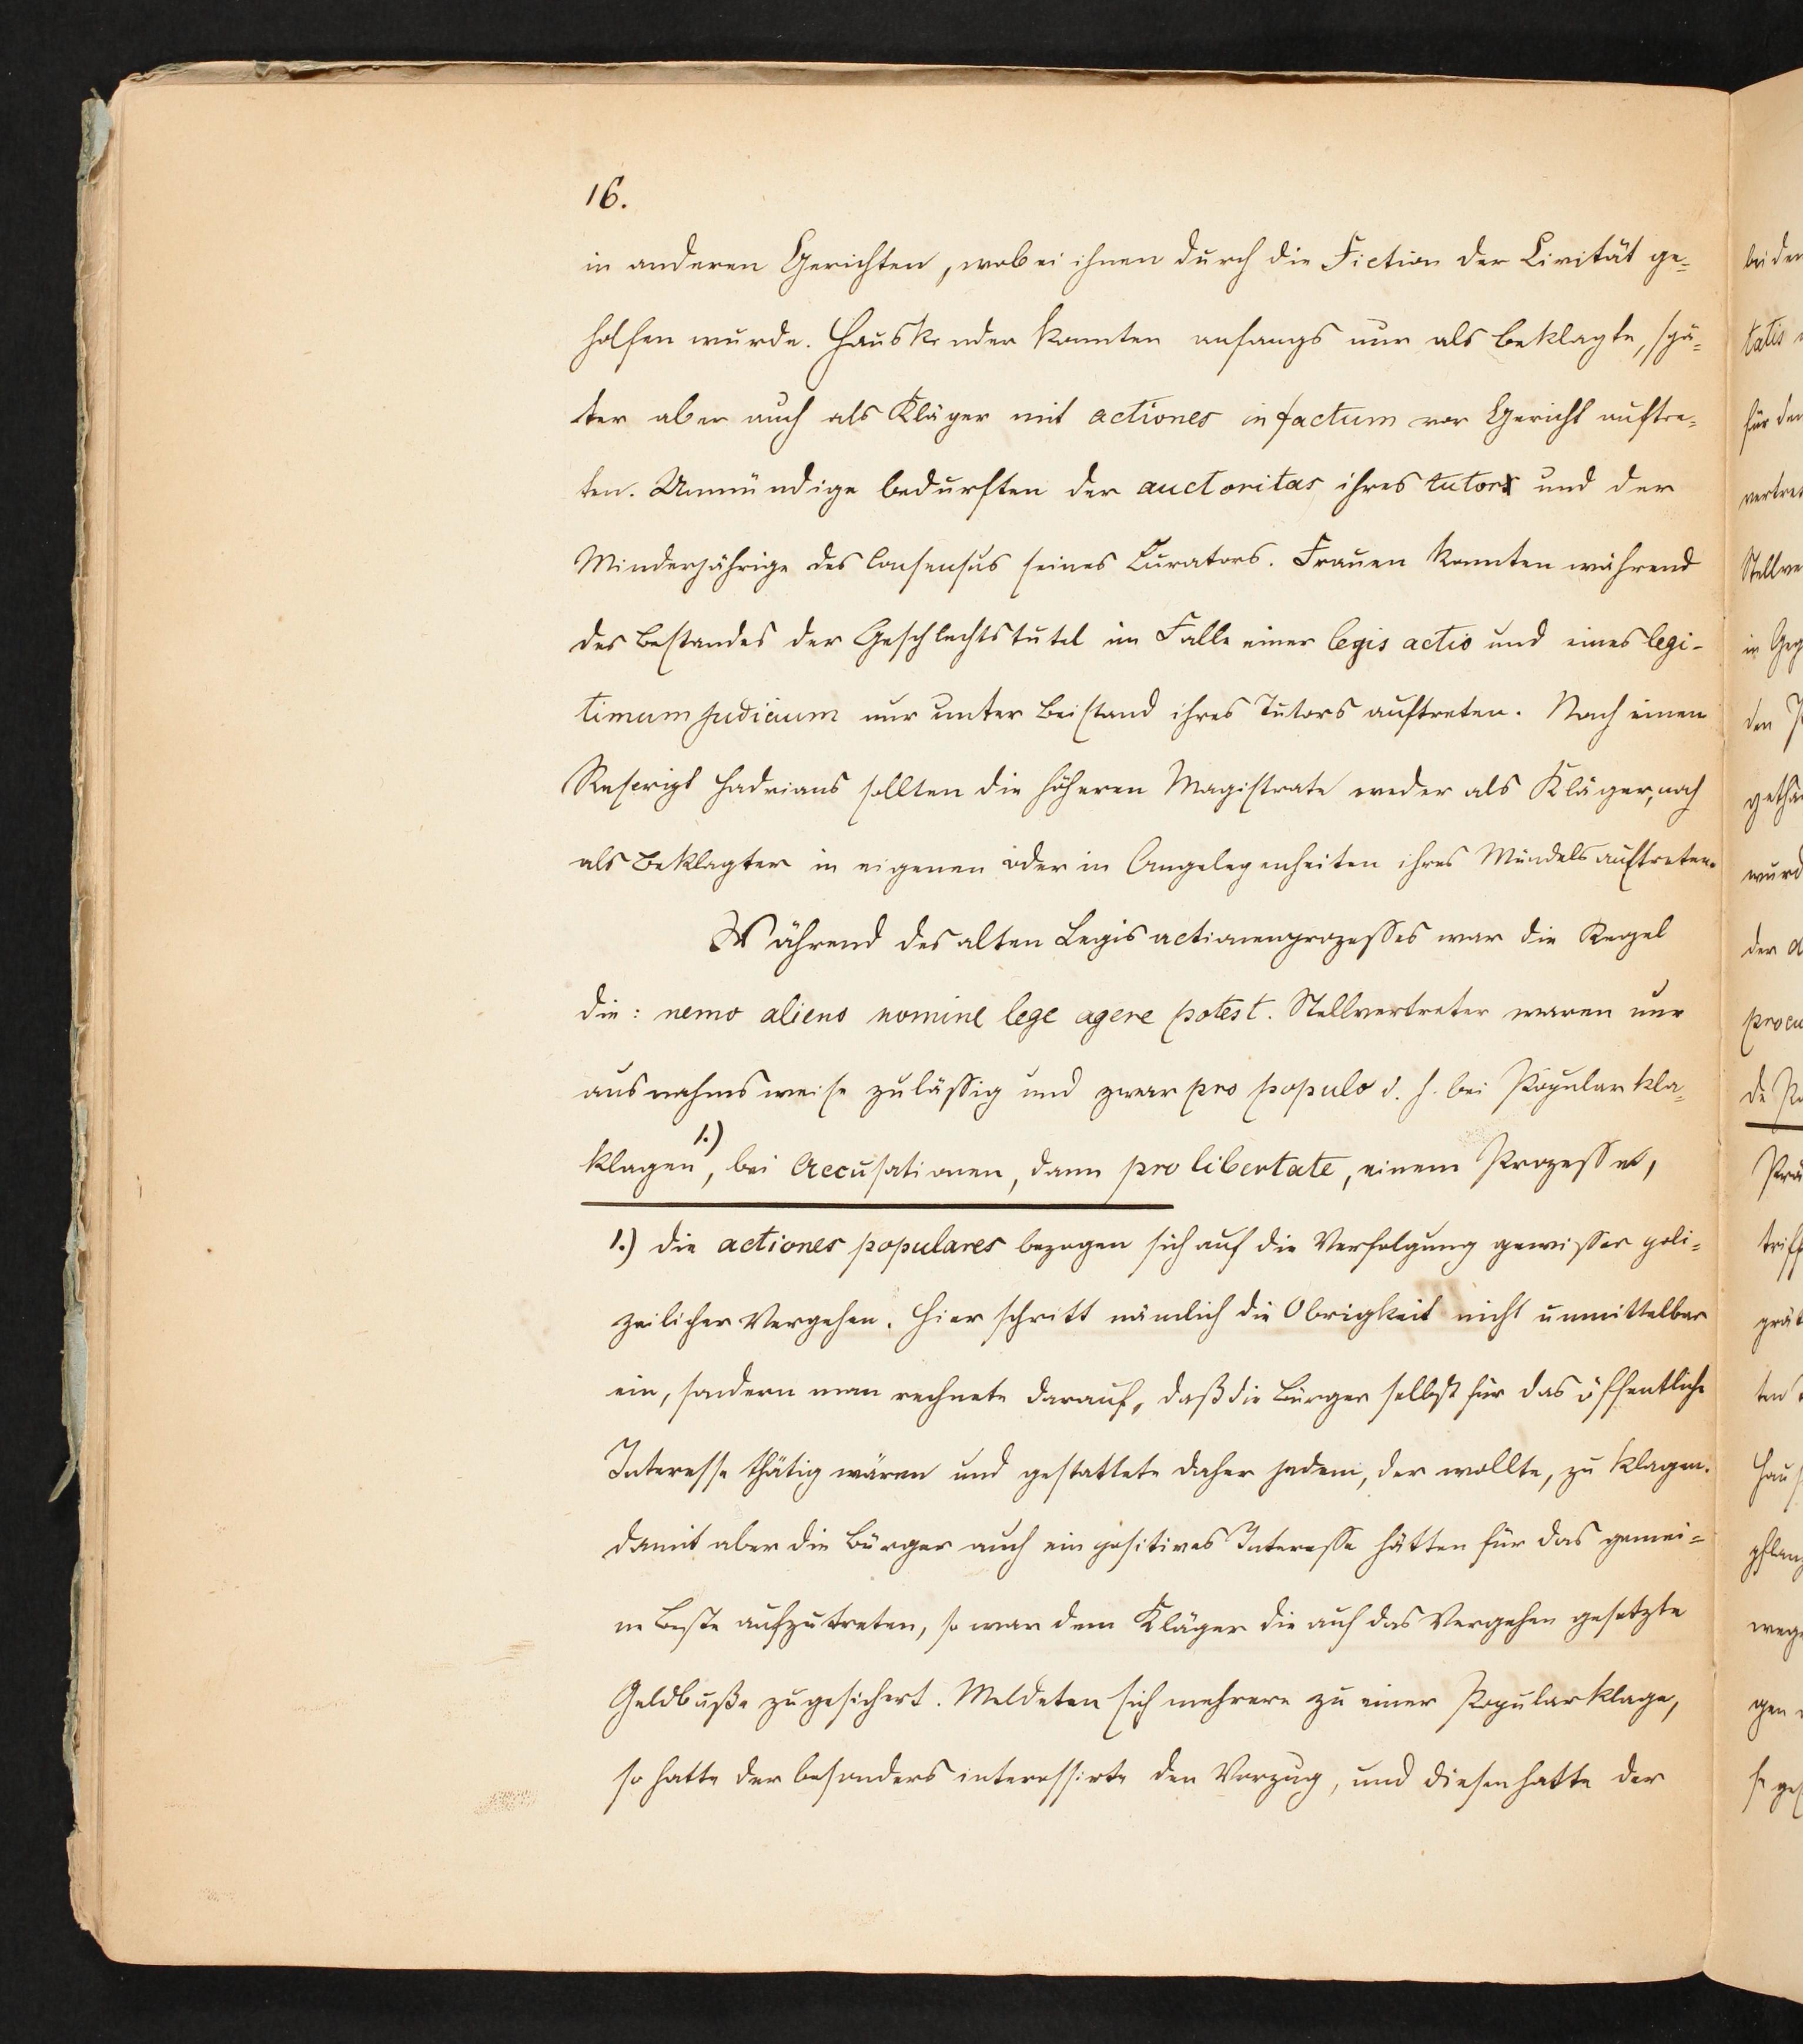 16.
in anderen Gerichten, wobei ihnen durch die Fiction der Civität ge=
holfen wurde. Hauskinder konnten anfangs nur als Beklagte, spä=
ter aber auch als Kläger mit actiones in factum vor Gericht auftre=
ten. Unmündige bedurften der auctoritas ihres tutors und der
Minderjährige des Consensus seines Curators. Frauen konnten während
des Bestandes der Geschlechtstutel im Falle einer legis actio und eines legi-
timum judicium nur unter Beistand ihres Tutors auftreten. Nach einem
Rescript Hadrians sollten die höheren Magistrate weder als Kläger, noch
als Beklagter in eigenen oder in Angelegenheiten ihres Mündels auftreten.
Während des alten Legisactionenprozesses war die Regel
die: nemo alieno nomine lege agere potest. Stellvertreter waren nur
ausnahmsweise zulässig und zwar pro populo d. h. bei Popularkla=
klagen 1.), bei Accusationen, dann pro libertate, einem Prozesse,
1.) die actiones populares bezogen sich auf die Verfolgung gewisser poli=
zeilicher Vergehen. Hier schritt nämlich die Obrigkeit nicht unmittelbar
ein, sondern man rechnete darauf, daß die Bürger selbst für das öffentliche
Interesse thätig wären und gestattete daher jedem, der wollte, zu klagen.
damit aber die Bürger auch ein positives Interesse hätten für das gemei=
ne Beste aufzutreten, so war dem Kläger die auf das Vergehen gesetzte
Geldbuße zugesichert. Meldeten sich mehrere zu einer Popularklage,
so hatte der besonders interessirte den Vorzug, und diesen hatte der